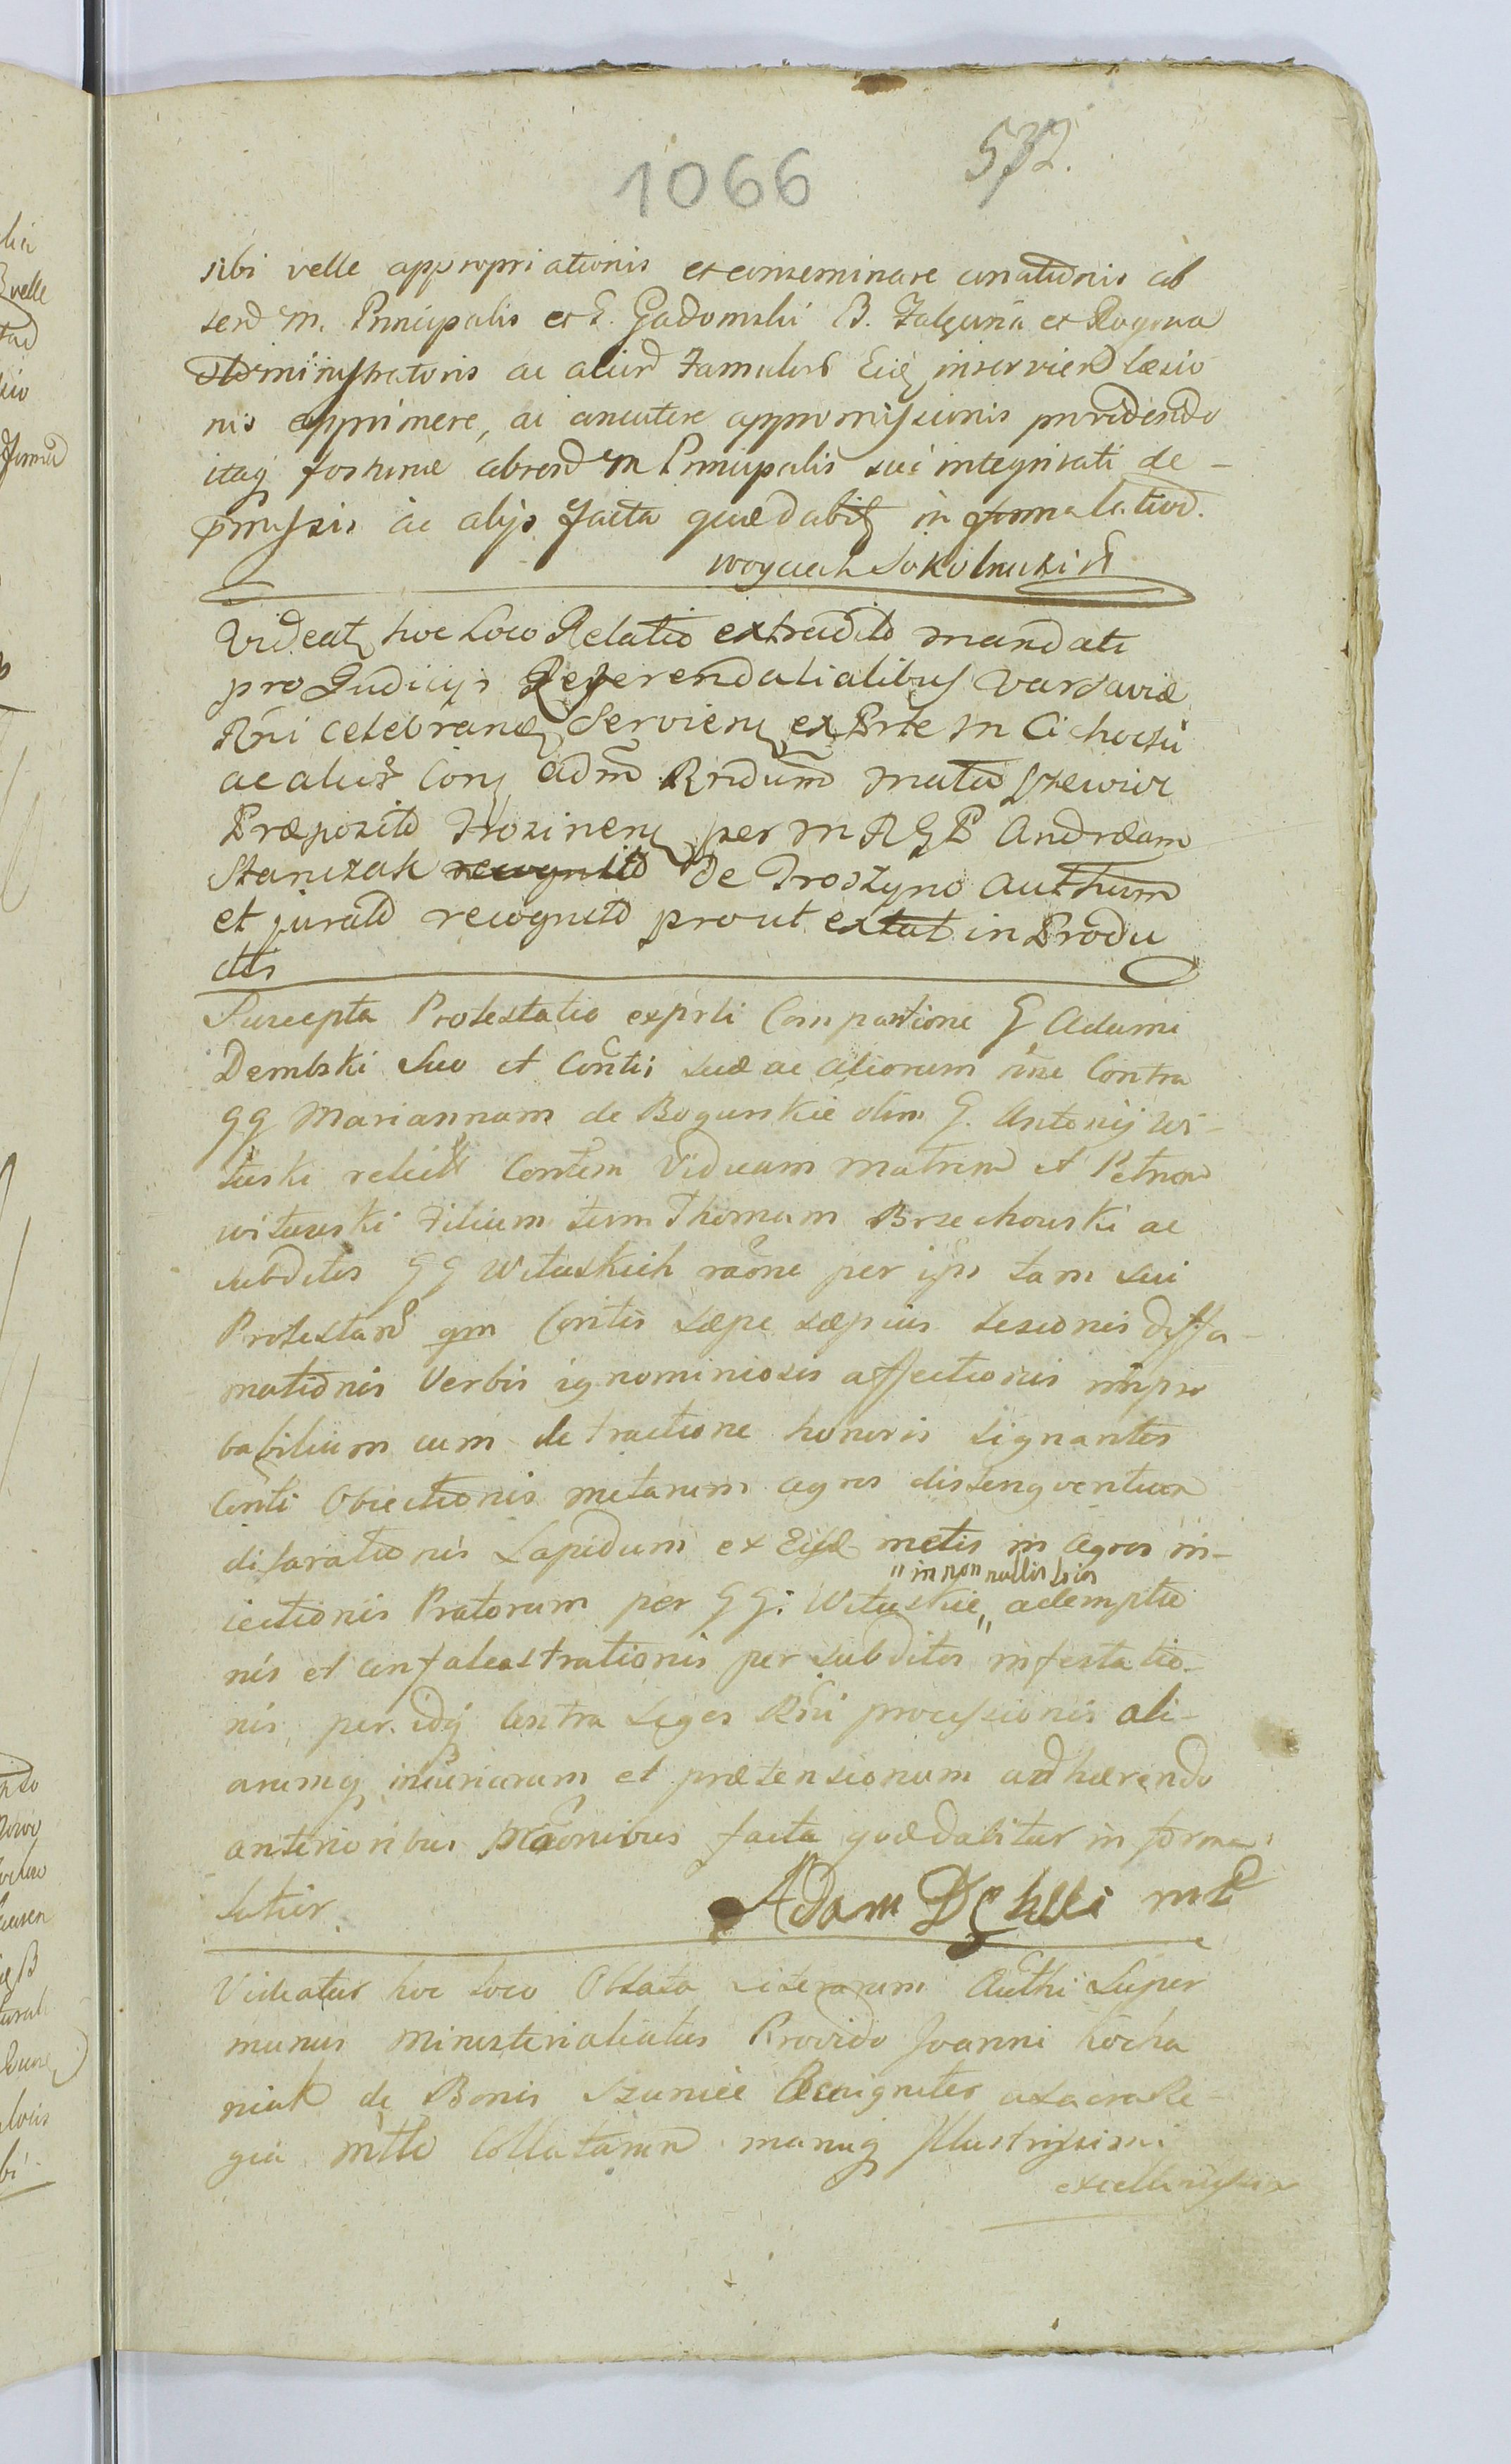 1066 532.
sibi velle appropriationis et conseminare conationis ab
send M. Principalis et G. Gadomski B. Falęcina et Rogowa
Administratoris ac aliord Famulord Eidę inserviend læsio
nis opprimere, ac concutere appromissionis providendo
itaq fortunæ abrend M Principalis sui integritati de-
præmissis ac alijs facta quædabit in forma latiord.
Woyciech Sokolnicki
Videat hoc Loco Relatio extradito mandati
pro Judicijs Referendalialibus Varsaviæ
Rni celebran Servien ex Prte M Cichocki
ac alior Conş adm Rndum Mateuszewicz
Præposito Troszinen per M R G P Andream
Stanczak recognito de Troszyno authum
et jurato recognito prout extat in Produ
ctis
Suscepta Protestatio exprti Compartione G Adami
Dembski Suo et Contis suæ ac aliorum nne Contra
GG Mariannam de Boguskie olim G. Antonij Wi-
tuski relict Contem Viduam matrem et Petrum
Wituski Filium tum Thomam Brzechowski ac
subditis GG Wituskich raone per ipos tam sui
Protestand qm Contis sæpe sæpius lesionis diffa-
mationis Verbis ignominiosis affectionis impro
babilium cum detractione honoris signantes
Conti Obiectionis metarum agros distingventium
disparationis Lapidum ex Eisd metis in agros in-
iectionis Pratorum per GG: Wituskie " in non nullis locis " ademptio
nis et confaleastrationis per subditos infestatio-
nis per idq Contra Leges Rni processionis ali-
arumq iniuriarum et prætensionum adhærendo
anterioribus præonibus facta quædabitur in forma
latior.
Adam Dębski mp
Videatur hoc loco Oblata Literarum Authi Super
munus Ministerialiatus Provido Joanni Kocha
niak de Bonis Szumie Recogniter a Sacra Re-
gia Mtte Collatarum manuq Illustrissimi
excellentissim